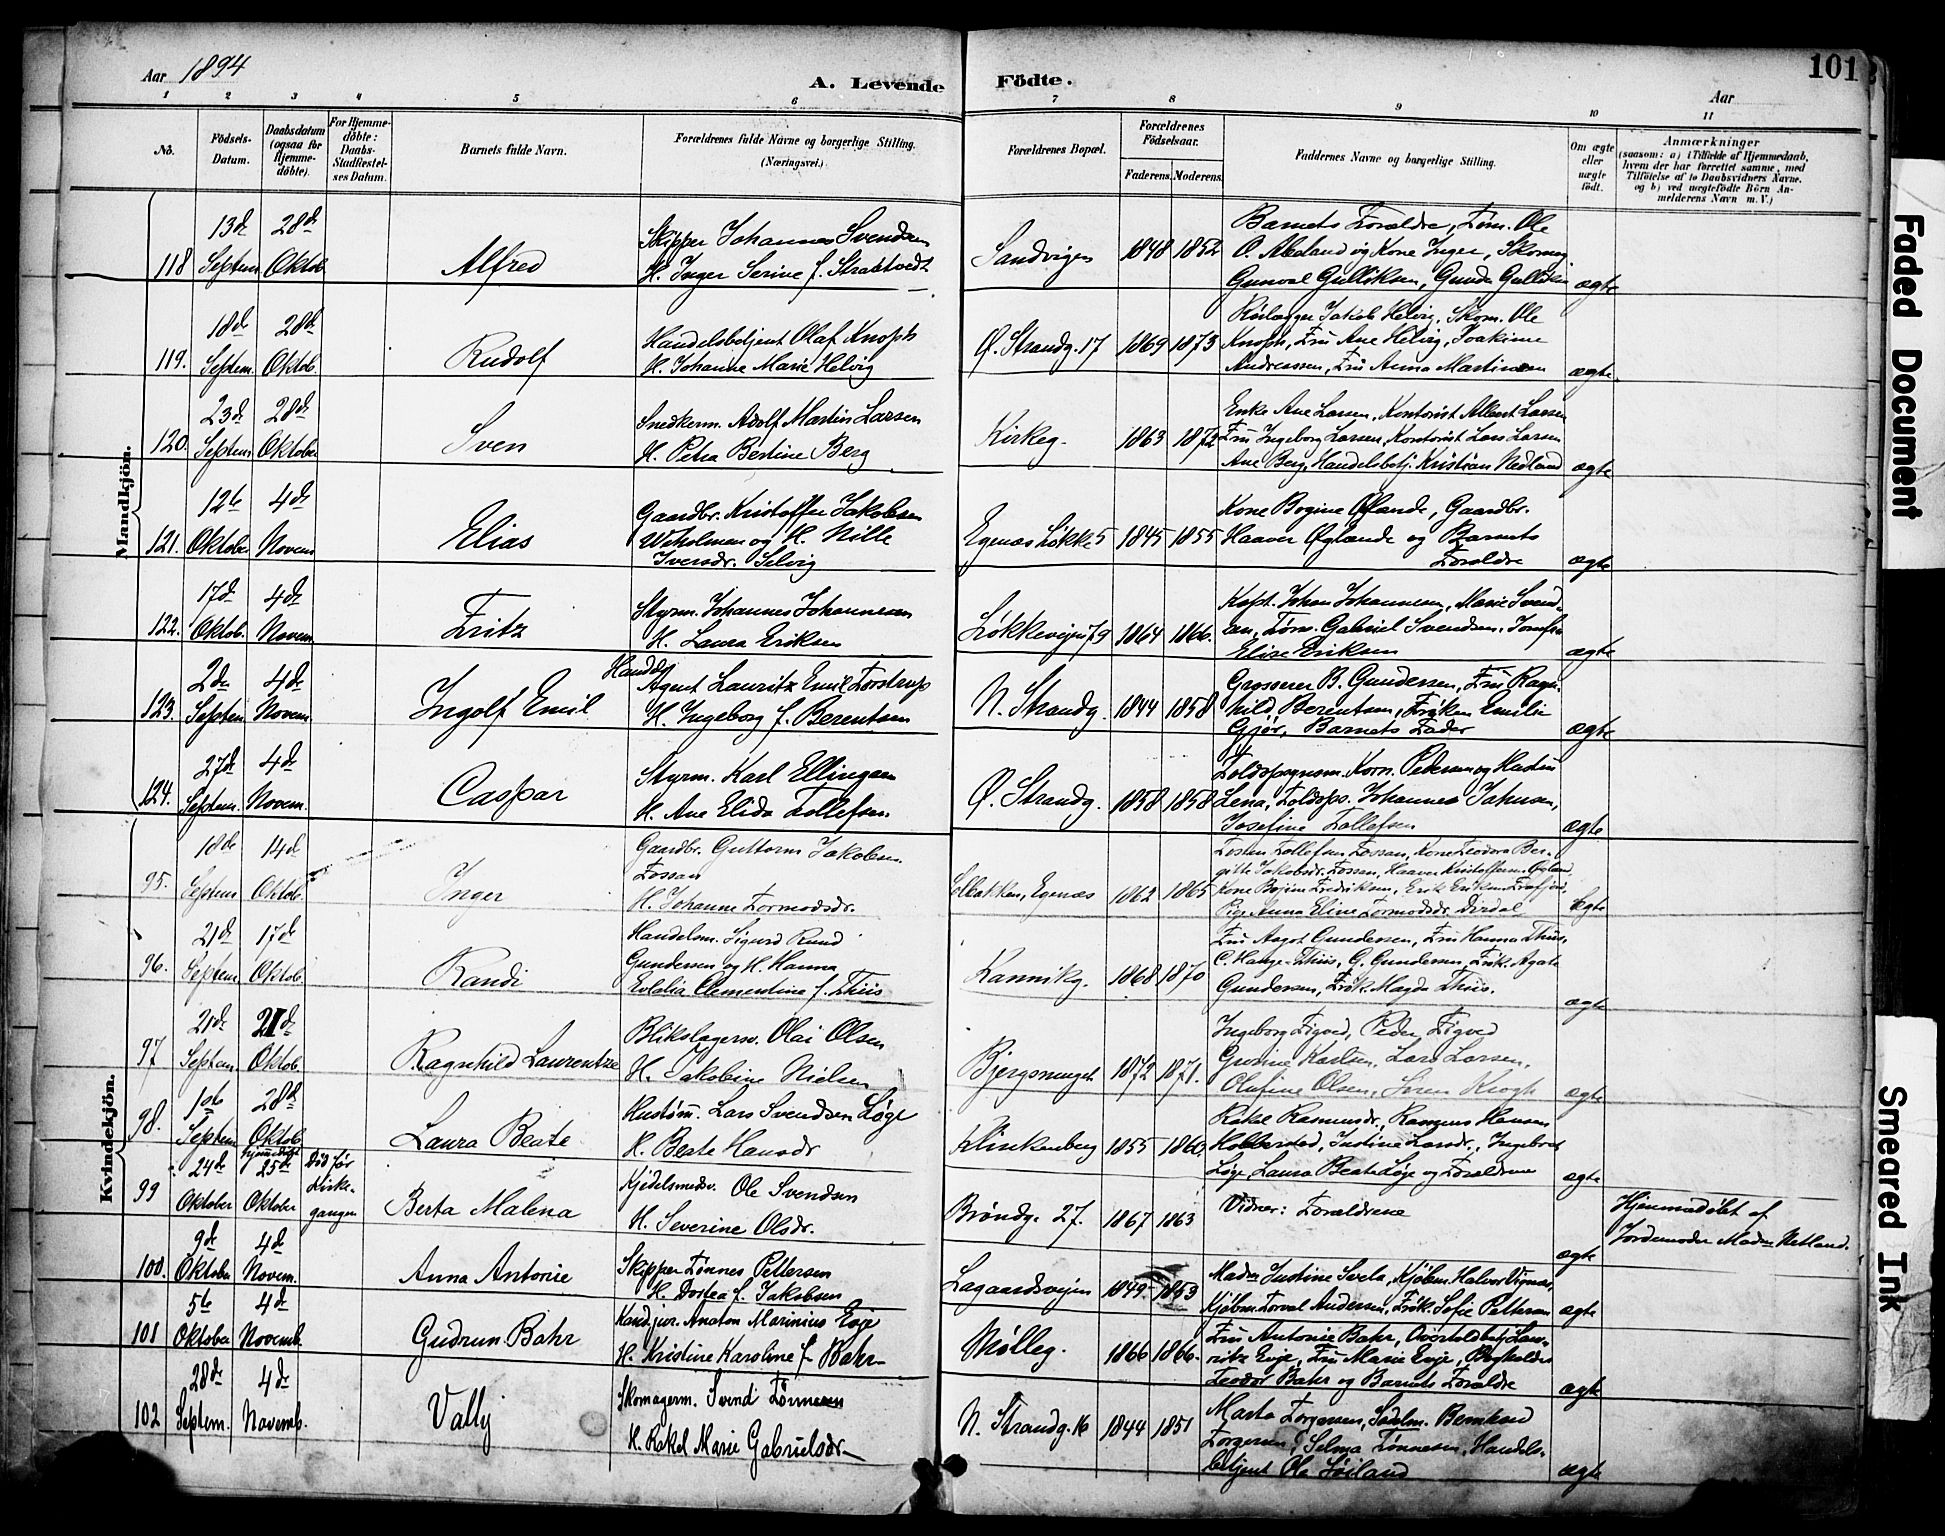 Aar 1894
A. Levende Födte.
101
Aar
1 2 3 4 5 6 7 8 9 10 11
No.
Födsels-Datum.
Daabsdatum (ogsaa for Hjemme-döbte).
For Hjemme-döbte: Daabs-Stadfæstel-ses Datum.
Barnets fulde Navn.
Forældrenes fulde Navne og borgerlige Stilling.
(Næringsvei.)
Forældrenes Bopæl.
Forældrenes Födselsaar.
Faderens. Moderens.
Faddernes Navne og borgerlige Stilling.
Om ægte eller uægte födt.
Anmærkninger
(saasom: a) i Tilfælde af Hjemmedaab,
hvem der har forrettet samme, med
Tilföielse af to Daabsvidners Navne,
og b) ved uægtefödte Börn An-
melderens Navn m. V.)
Mandkjön.
118 13de Septem 28de Oktob.
Alfred
Skipper Johannes Svendsen
H. Inger Serine f. Strabtvedt
Sandvigen 1848 1852
Barnets Forældre, Tøm. Ole
O. Aaland og Kone Inger, Skomag
Gunval Gulliksen, Gunda Gulliksen
ægte
119. 18de Septem. 28de Oktob.
Rudolf
Handelsbetjent Olaf Knoph
H. Johanne Marie Helvig
Ø. Strandg. 17 1869 1873
Rørlægger Jakob Helvig, Skom. Ole
Knoph, Fru Ane Helvig, Joakime
Andreassen, Fru Anna Martinsen
ægte.
120. 23de Septem 28de Oktober
Sven
Snedkerm. Adolf Martin Larsen
H. Petra Bertine Berg
Kirkeg. 1863 1872
Enke Ane Larsen, Kontorist Albert Larsen
Fru Ingeborg Larsen, Kontorist Lars Larsen
Ane Berg, Handelsbetj. Kristian Nedland
ægte
121. 12te Oktober 4de Novem
Elias
Gaardbr. Kristoffer Jakobsen
Waholmen og H. Nille
Iversdr. Selvig
Egenæs Løkke 5 1845 1855
Kone Bogine Øglande, Gaardbr.
Haaver Øglande og Barnets
Forældre
ægte
122. 17de Oktob. 4de Novem.
Fritz
Styrm. Johannes Johannesen
H. Laura Eriksen
Løkkeveien 79 1864 1866.
Kapt. Johan Johannesen, Marie Svend-
sen, Tøm. Gabriel Svendsen, Jomfru
Elise Eriksen
ægte
123. 2den Septem 4de Novem.
Ingolf Emil
Handels
Agent Lauritz Emil Forstrup
H. Ingeborg f. Berentsen
N. Strandg. 1844 1858
Grosserer B. Gundersen, Fru Ragn-
hild Berentsen, Frøken Emilie
Gjør, Barnets Fader
ægte
124. 27de Septem. 4de Novem.
Caspar
Styrm. Karl Ellingsen
H. Ane Elida Tollefsen.
Ø. Strandg. 1858 1858
Toldopsynsm. Korn. Pedersen og Hustru
Lena, Toldops. Johannes Jahnsen,
Josefine Tollefsen
ægte
Kvindekjön.
95. 18de Septem 14de Oktob.
Inger
Gaardbr. Guttorm Jakobsen
Fossan
H. Johanne Tormodsdr.
Solbakken, Egenæs 1862 1865
Tosten Tollefsen Fossan, Kone Teodora Ber-
gitte Jakobsdr. Fossan, Haaver Kristoffersen Øgland,
Kone Bojine Fredriksen, Erik Eriksen Frafjord,
Pige Anna Eline Tormodsdr. Dirdal
Ægte
96. 21de Septem. 17de Oktob.
Randi
Handelsm. Sigurd Ruud
Gundersen og H. Hanna
Eolalia Clementine f. Thiis
Kannikg. 1868 1870
Fru Aagot Gundersen, Fru Hanna Thiis,
C. Hauge-Thiis, G. Gundersen, Frøk. Agate
Gundersen, Frøk. Magda Thiis.
ægte
97 21de Septem. 21de Oktob.
Ragnhild Laurentze
Blikslagersv. Olai Olsen
H. Jakobine Nielsen
Bjergsmuget 1872 1871.
Ingeborg Figved, Peder Figved
Gurine Karlsen, Lars Larsen,
Olufine Olsen, Soren Krogh
ægte
98. 1ste Septem 28de Oktob
Laura Beate
Hustøm. Lars Svendsen Løge
H. Beate Hansdr
Klinkenberg 1855 1860.
Rakel Rasmusdr., Rasmus Hansen
Hobberstad, Justine Larsdr., Ingeborg
Løge, Laura Beate Løge og Forældrene
ægte
99 24de Oktober hjemmedøbt 25de Oktober
Död før Kirke-gangen
Berta Malena
Kjedelsmedsv. Ole Svendsen
H. Severine Olsdr.
Brøndg. 27. 1867 1863
Vidner: Forældrene
ægte
Hjemmedøbt af
Jordemoder Madm Netland.
100. 9de Oktober 4de Novem.
Anna Antonie
Skipper Tønnes Pettersen
H. Dortea f. Jakobsen
Lagaardsveien 1849 1853
Madm Justine Svela, Kjøbm. Halvor Vignæs,
Kjøbm. Torval Andersen, Frøk. Sofie Pettersen
ægte
101 5te Oktober 4de Novemb.
Gudrun Bahr
Kand. jur. Anaton Marinius Evje
H. Kristine Karoline f. Bahr
Mølleg. 1866 1866.
Fru Antonie Bahr, Overtoldbetj. Lau-
ritz Evje, Fru Marie Evje, Bogholder
Teodor Bahr og Barnets Forældre
ægte
102 28de Septem. 4de Novemb.
Vally
Skomagerm. Svend Tønnesen
H. Rakel Marie Gabrielsdr.
N. Strandg. 16 1844 1851
Marta Torgersen, Sadelm. Berntsen
Torgersen, Selma Tønnesen, Handels-
betjent Ole Løiland
ægte
Faded Document
Smeared Ink